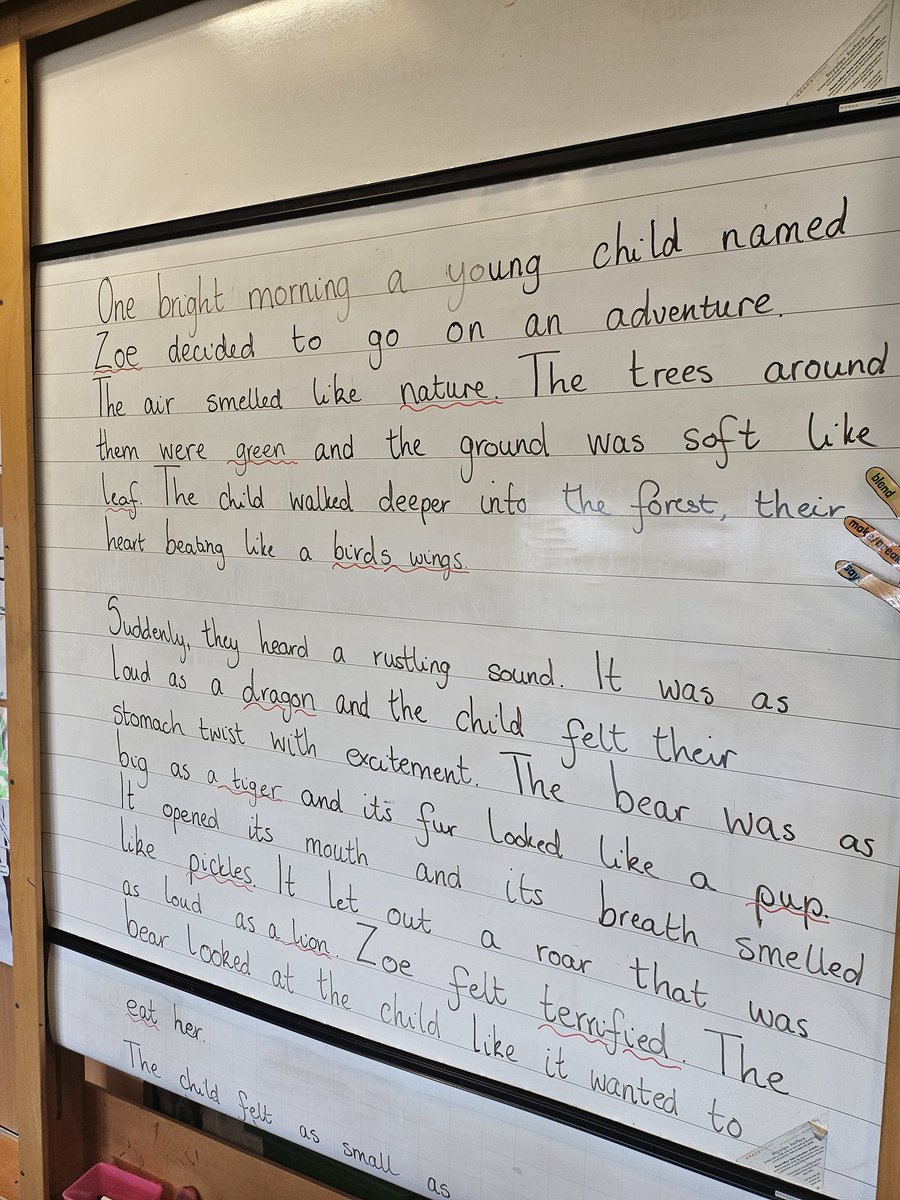 One bright morning a young child named
Zoe decided to go on an adventure.
The air smelled like nature. The trees around
them were green and the ground was soft like
leaf. The child walked deeper into the forest, their
heart beating like a birds wings.
blend
make/break
say
Suddenly, they heard a rustling sound. It was as
loud as a dragon and the child felt their
stomach twist with excitement. The bear was as
big as a tiger and its fur looked like a pup.
It opened its mouth and its breath smelled
like pickles. It let out a roar that was
as loud as a lion. Zoe felt terrified. The
bear looked at the child like it wanted to
eat her.
The child felt as small as